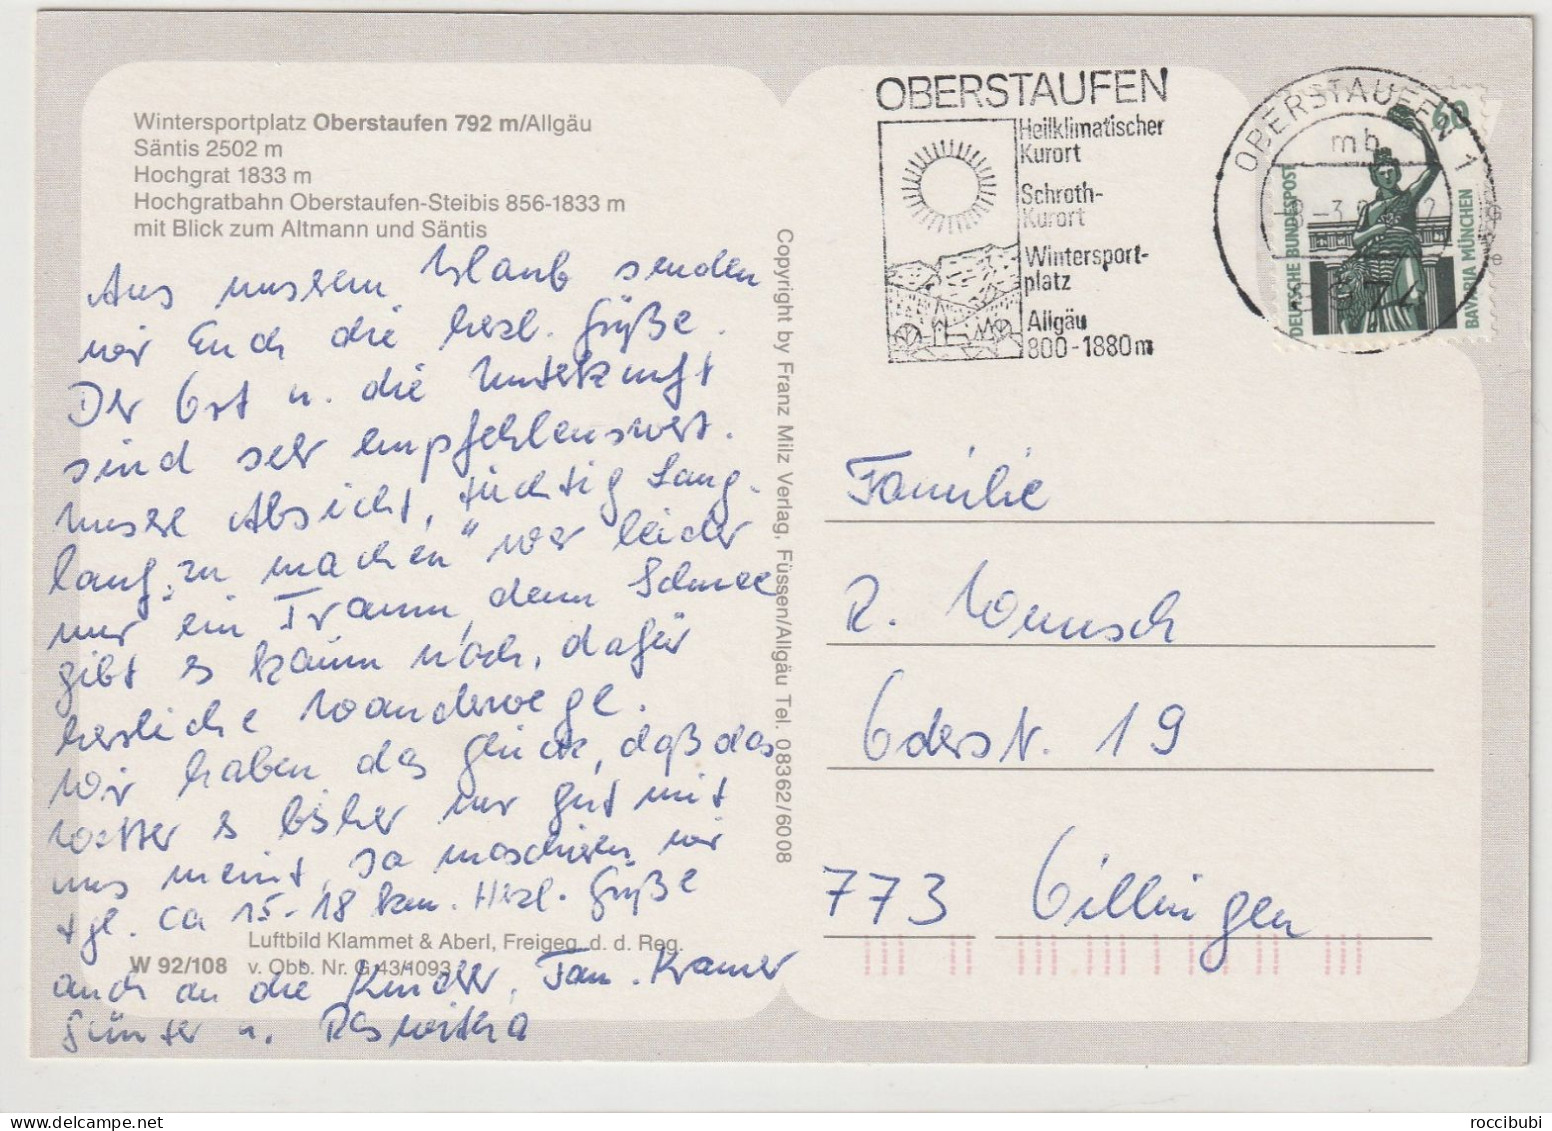 Wintersportplatz Oberstaufen 792 m/Allgäu
Säntis 2502 m
Hochgrat 1833 m
Hochgratbahn Oberstaufen-Steibis 856-1833 m
mit Blick zum Altmann und Säntis
Aus unserem Urlaub senden
wir Euch die herzl. Grüße.
Der Ort u. die Unterkunft
sind sehr empfehlenswert.
Unsere Absicht, tüchtig Lang-
lauf „zu machen" war leider
nur ein Traum, denn Schnee
gibt es kaum noch, dafür
herrliche Wanderwege.
Wir haben das Glück, daß das
Wetter es bisher nur gut mit
uns meint, so marschieren wir
tgl. ca 15-18 km. Herzl. Grüße
auch an die Kinder, Fam. Kramer
Günter u. Roswitha
Luftbild Klammet & Aberl, Freigeg. d. d. Reg.
W 92/108 v. Obb. Nr. G 43/1093
Copyright by Franz Milz Verlag, Füssen/Allgäu Tel. 08362/6008
OBERSTAUFEN
Heilklimatischer
Kurort
Schroth-
Kurort
Wintersport-
platz
Allgäu
800-1880m
OBERSTAUFEN 1
mb
60
DEUTSCHE BUNDESPOST
BAVARIA MÜNCHEN
Familie
R. Wunsch
Oderstr. 19
773 Villingen
roccibubi